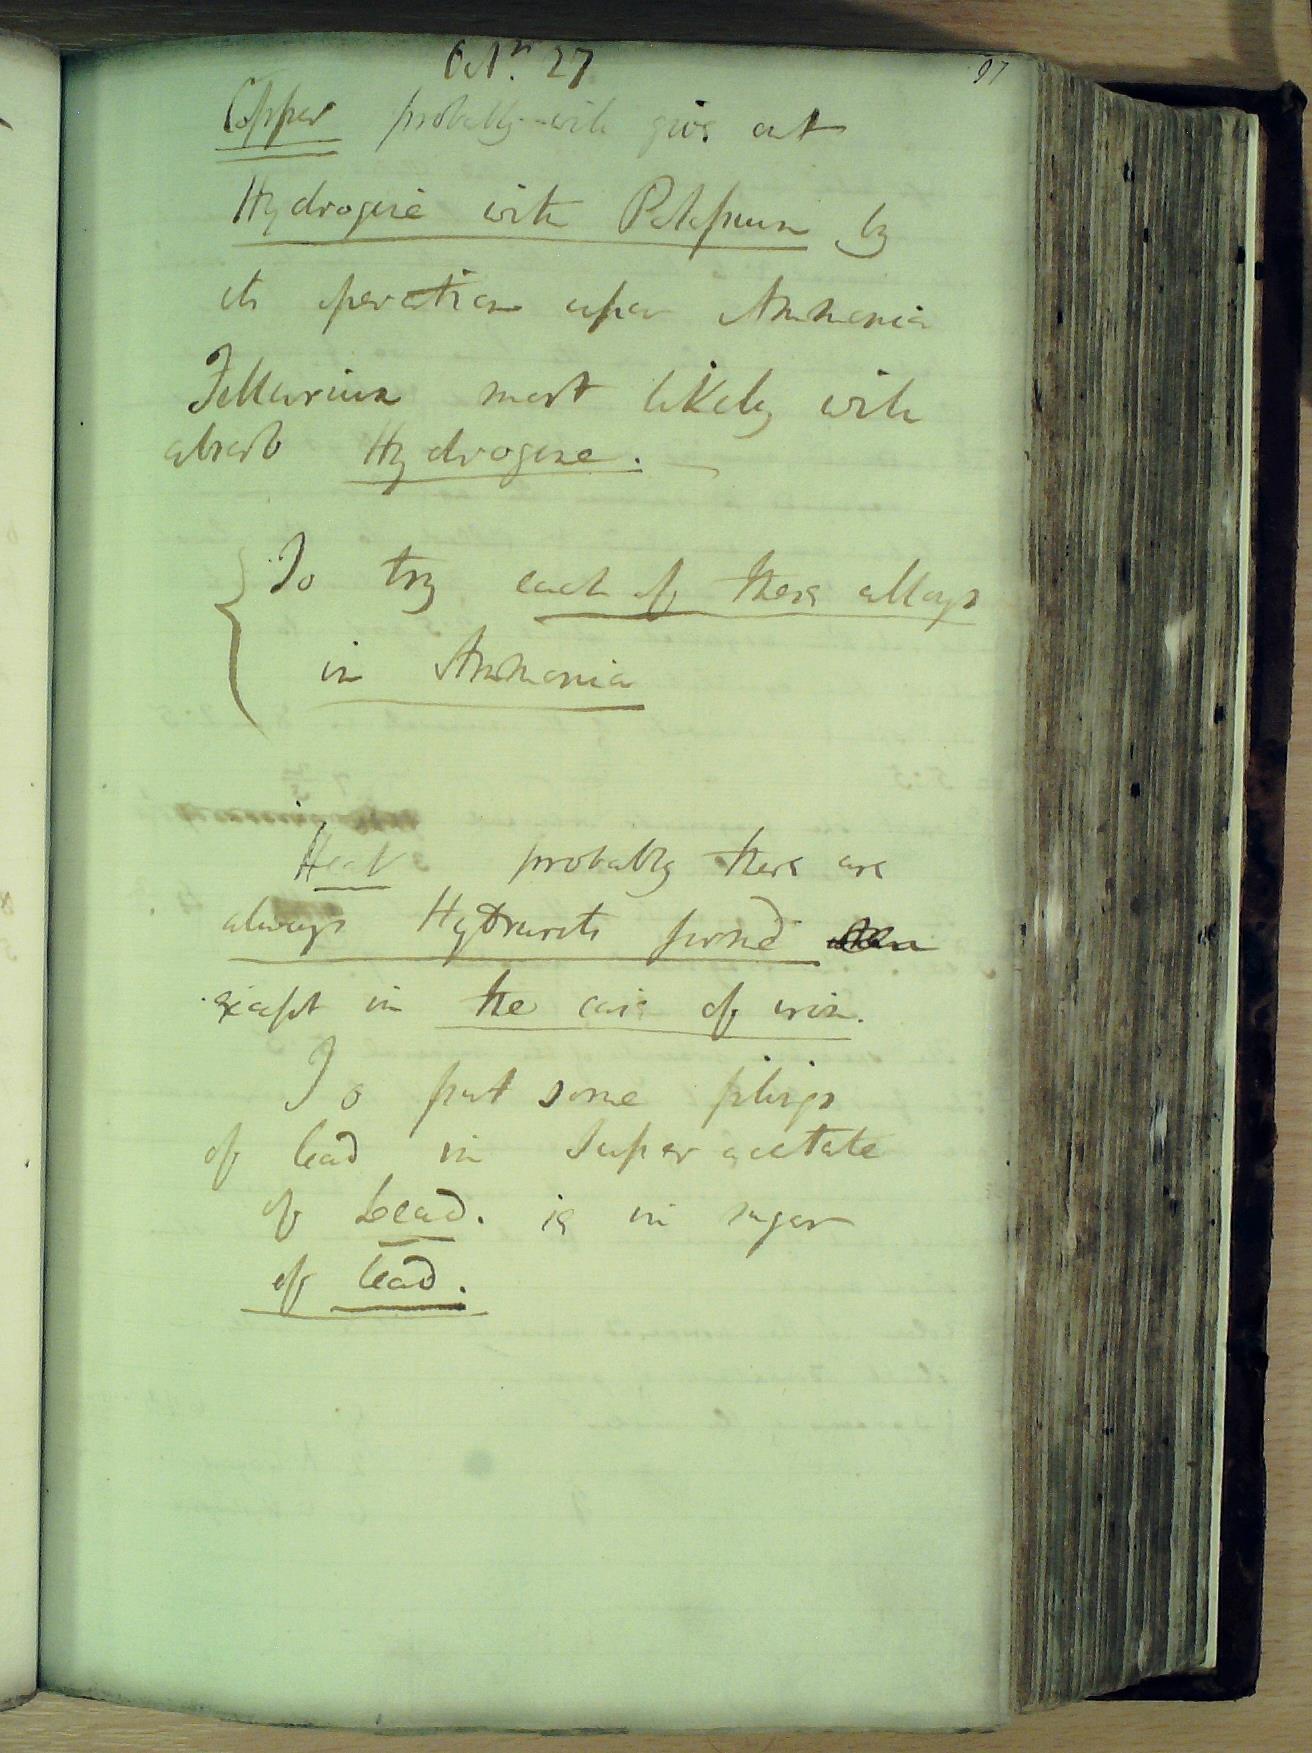 Octr. 27
97
Copper probably will give out
Hydrogene with Potassium by
its operation upon Ammonia
Tellurium most likely will
absorb Hydrogene.
To try each of these alloys
in Ammonia
Heat probably there are
always Hydrurets formed
except in the case of iron.
To put some filings
of lead in Super acetate
of Lead. ie in sugar
of lead.